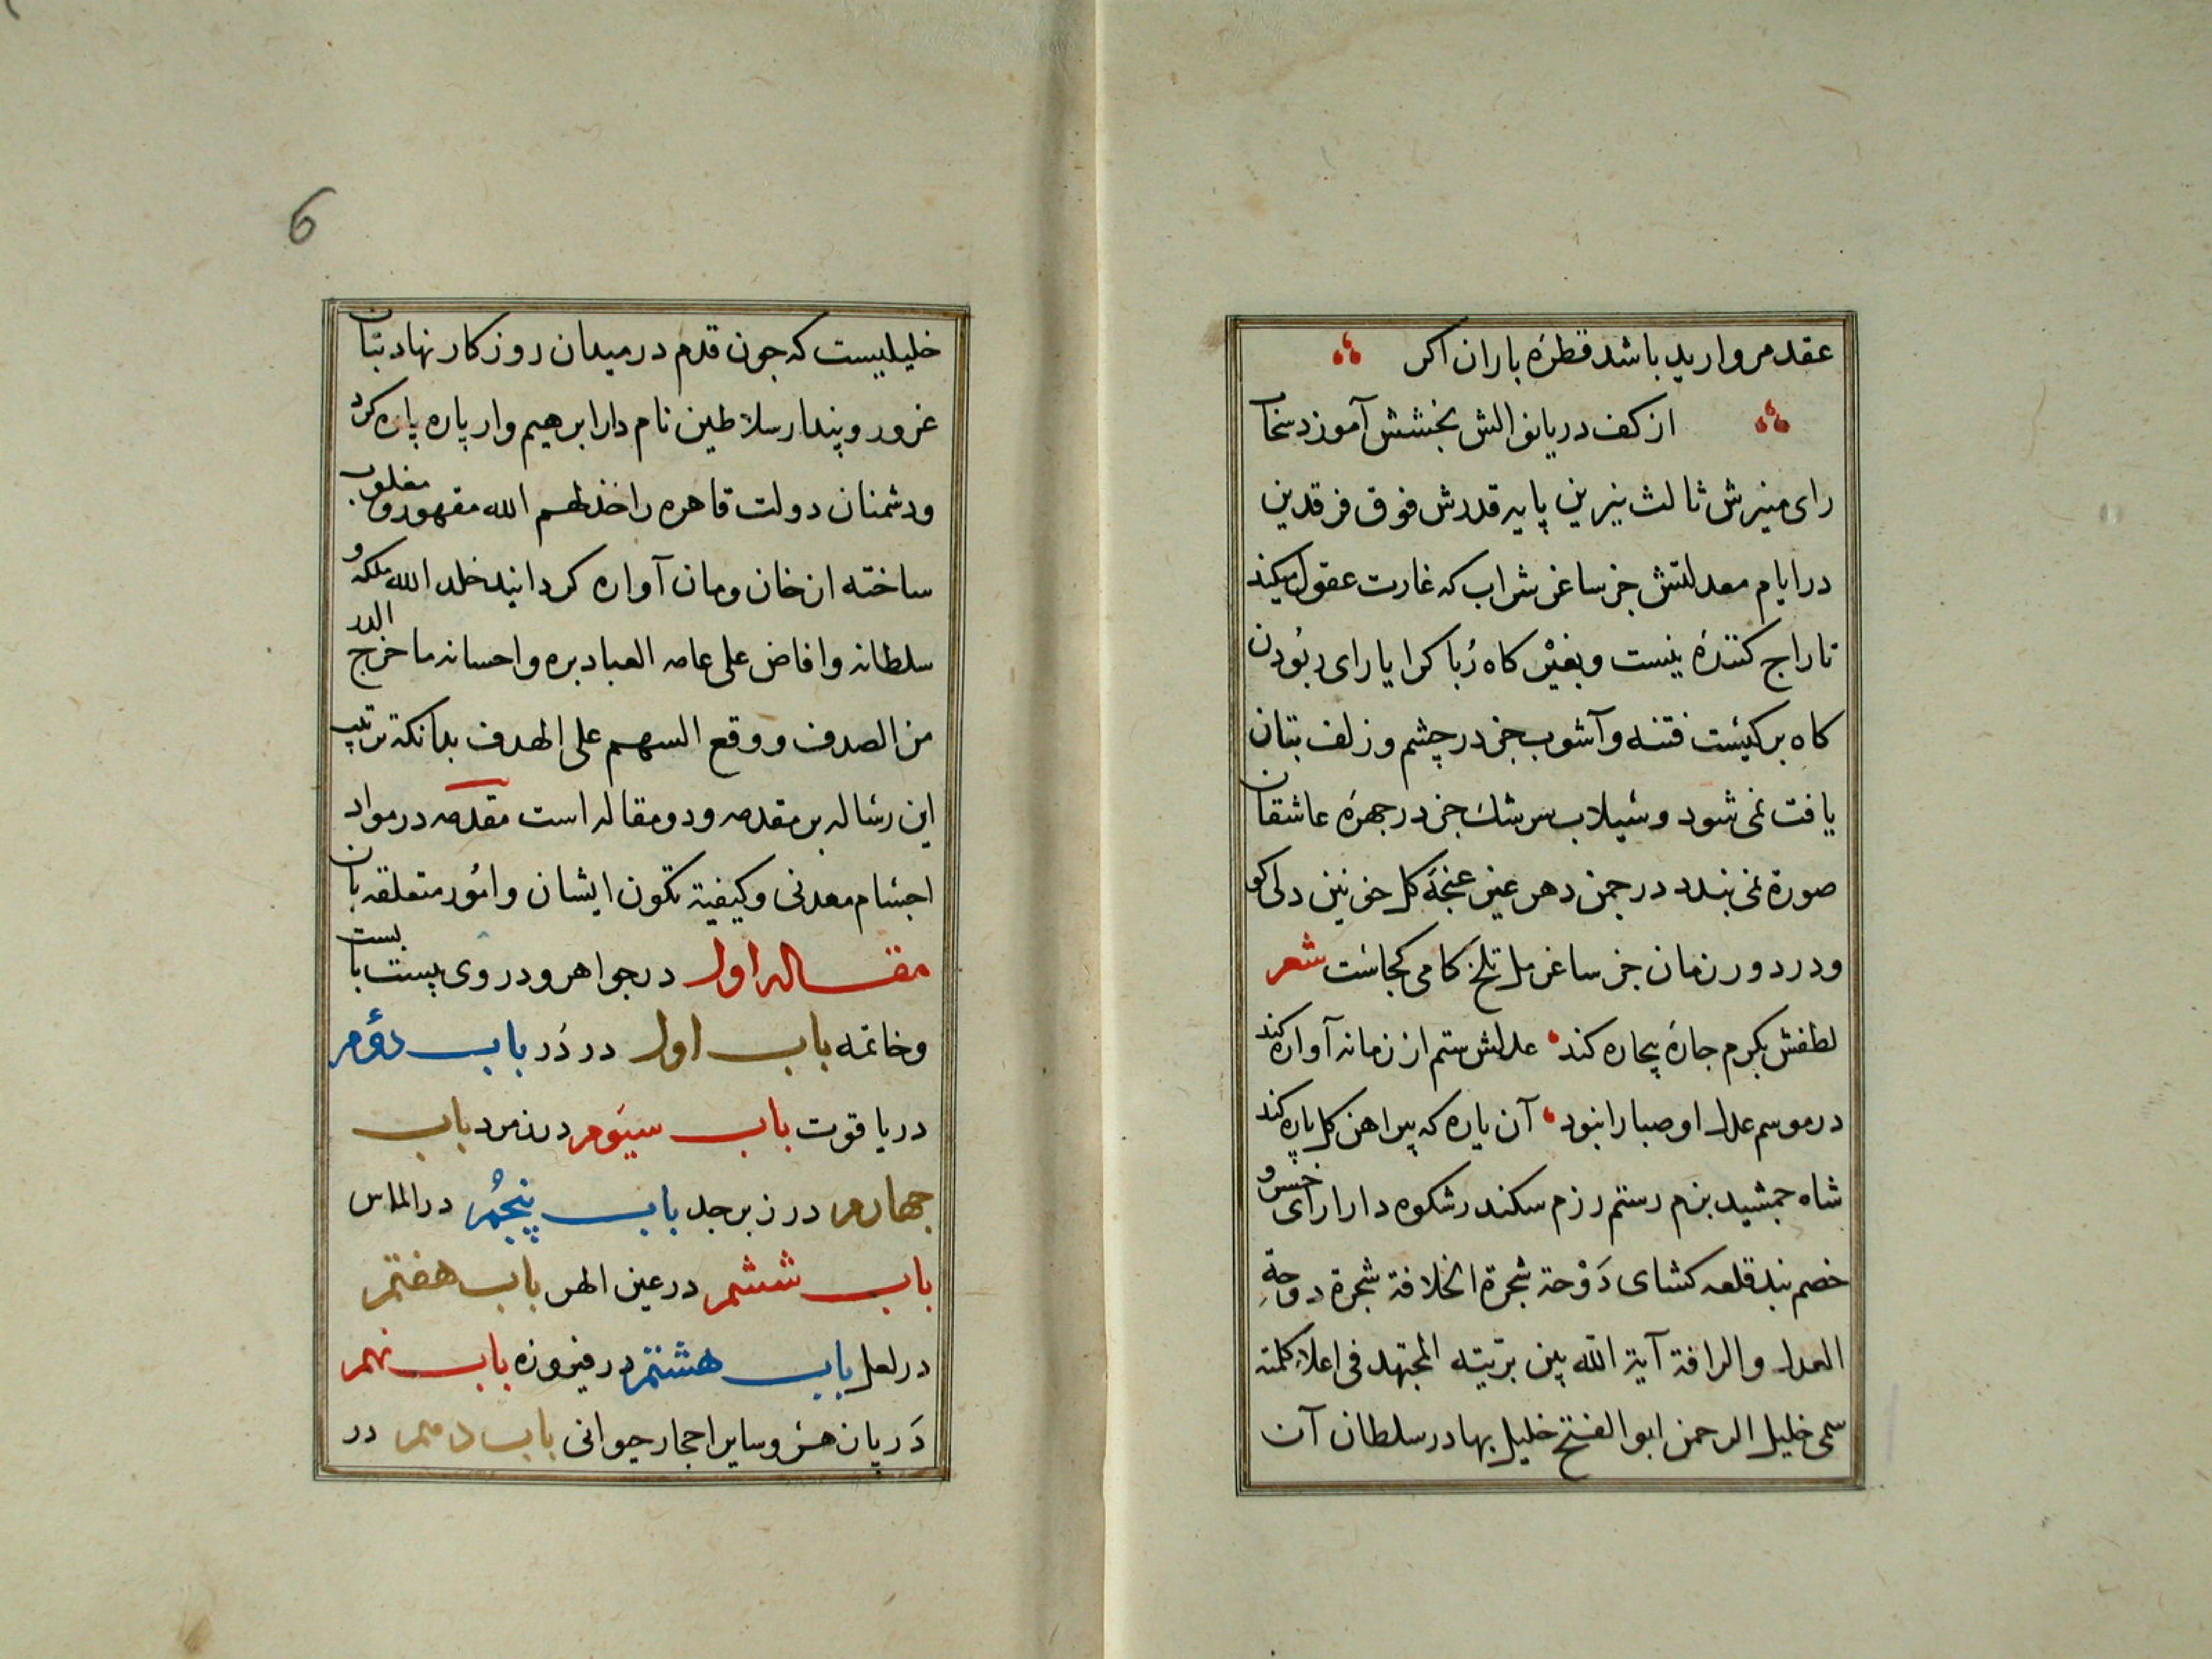 عقد مروارید باشد قطرهٔ باران اکر
از کف دریانوالش بخشش آموزد سخا
رای منیرش ثالث نیرین پایه قدرش فوق فرقدین
در ایام معدلتش جز ساغر شراب که غارت عقول میکند
تاراج کنندهٔ نیست و بغیر کاه رُبا کرا یارای ربُودن
کاه برکیست فتنه و آشوب جز در چشم و زلف بتان
یافت نمی شود و سیلاب سرشك جز در جهرهٔ عاشقان
صورة نمی بندد در جمن دهر غیر غنجهٔ کل خونین دلی کو
و در دور زمان جز ساغر مل تلخ کامی کجاست شعر
لطفش بکرم جارهٔ بیجاره کند عدلش ستم از زمانه آواره کند
در موسم عدل او صبا را نبود آن یاره که پیراهن کل پاره کند
شاه جمشید بزم رستم رزم سکندر شکوه دارا رای خسرو
خصم بند قلعه کشای دَوْحة شجرة الخلافة شجرة دوحةِ
العدل والرافة آیة الله بین بریّته المجتهد فی اعلاء کلمته
سمی خلیل الرحمن ابو الفتح خلیل بهادر سلطان آن
6
خلیلیست که جون قدم در میدان روزکار نهاد بتان
غرور و پندار سلاطین نام دار ابرهیم وار پاره پاره کرد
و دشمنان دولت قاهره را خذلهم الله مقهور و مغلوب
ساخته از خان ومان آواره کردانید خلد الله ملکه و
سلطانه وافاض علی عامه العباد بره واحسانه ما خرج الدر
من الصدف ووقع السهم علی الهدف بدانکه ترتیب
این رساله بر مقدمه و دو مقاله است مقدمه در مواد
اجسام معدنی و کیفیة تکون ایشان و امُور متعلقه بان
مقاله اول در جواهر و در وی بیست باب است
و خاتمه باب اول در دُر باب دوُم
در یاقوت باب سیَوم در زمرد باب
جهارم در زبرجد باب پنجُم در الماس
باب ششم در عین الهر باب هفتم
در لعل باب هشتم در فیروزه باب نهم
دَر پان هر و سایر احجار حیوانی باب دهم در